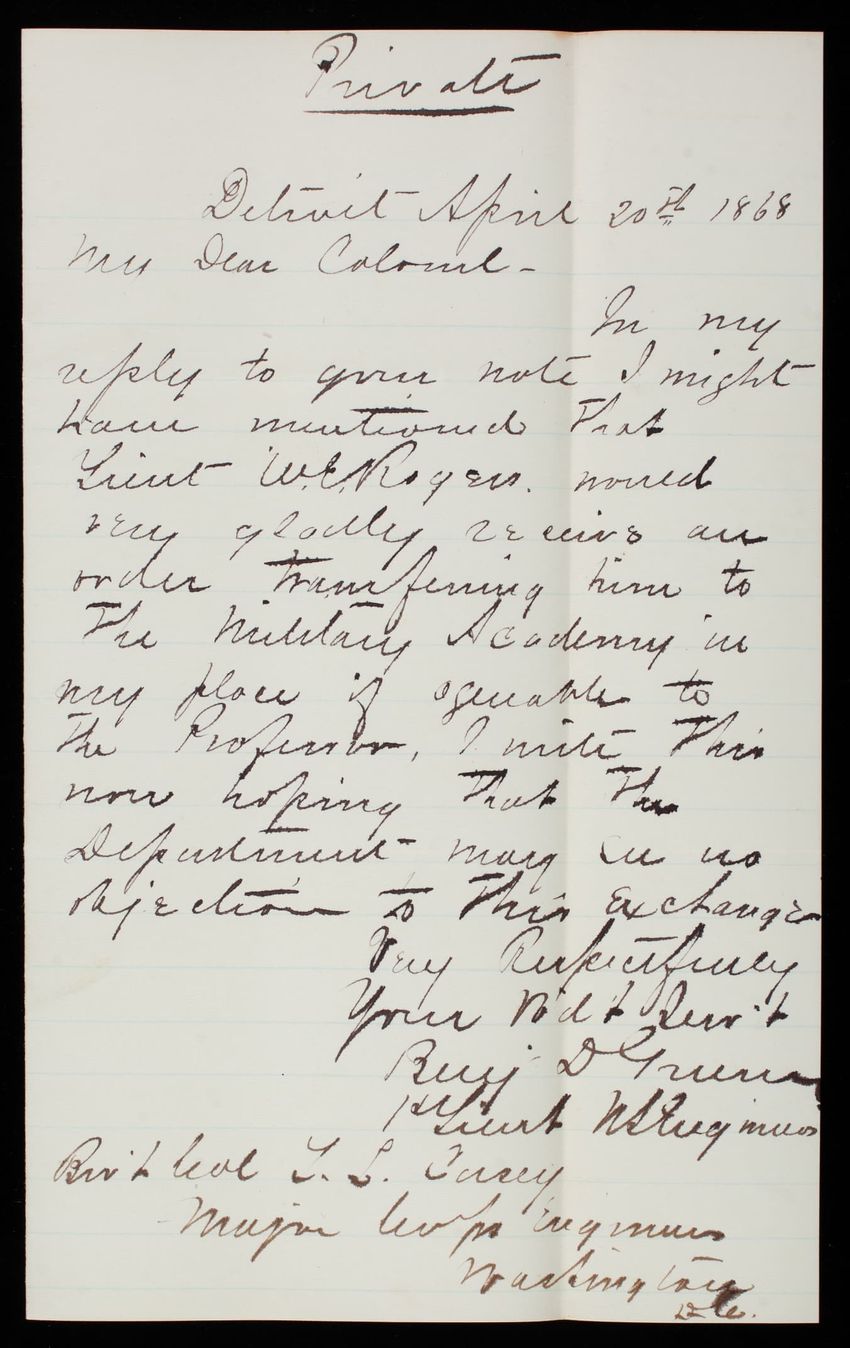 Private
Detroit April 20th 1868
My Dear Colonel -
In my
reply to your note I might
have mentioned that
Lieut W.E. Rogers. would
very gladly receive an
order transferring him to
the Military Academy in
my place if agreeable to
the Professor, I write this
now hoping that the
Department may see no
objection to this exchange
Very Respectfully
Your Ob'd't Serv't
Benj D Greene
1st Lieut US Engineers
Brv't Col T. L. Casey
Major Corps Engineers
Washington
D.C.